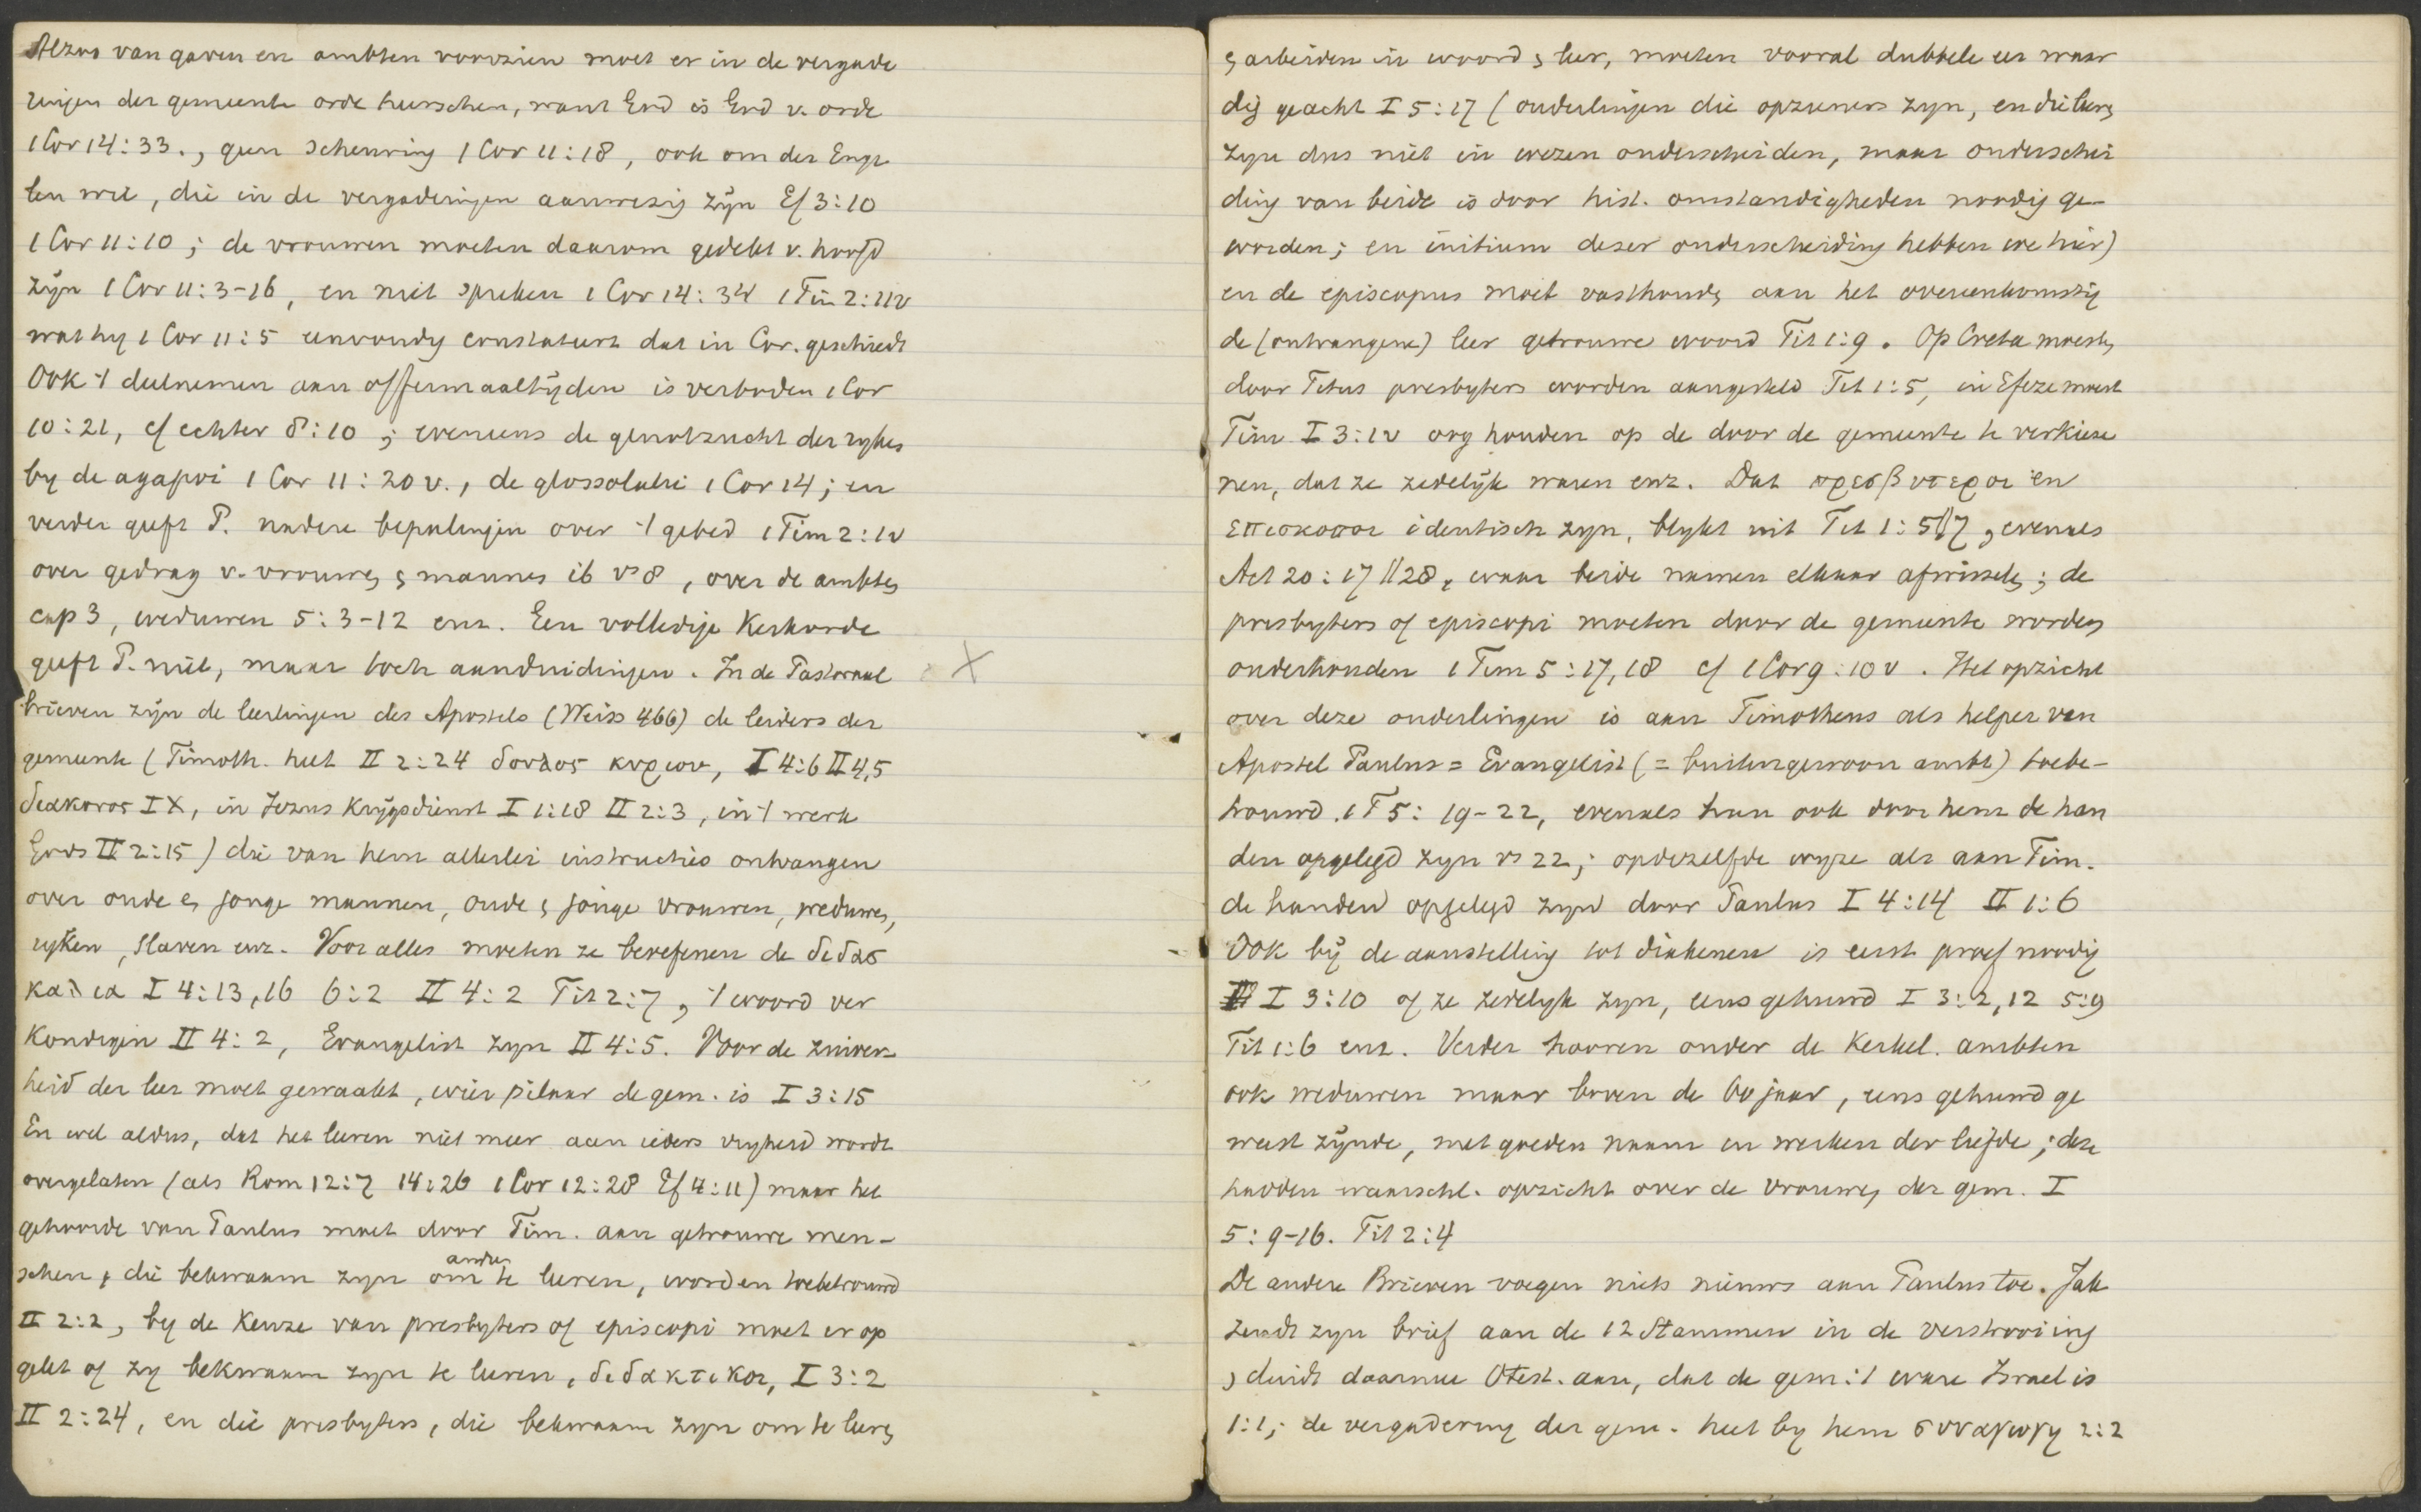 Alzoo van gaven en ambten voorzien moet er in de vergade
ringen der gemeente orde heerschen, want God is God v. orde
1 Cor 14:33., geen scheuring 1 Cor 11:18, ook om der Enge
len wil, die in de vergaderingen aanwezig zijn Ef 3:10
1 Cor 11:10; de vrouwen moeten daarom gedekt v. hoofd
zijn 1 Cor 11:3-16, en niet spreken 1 Cor 14:34 1 Tim 2:11v
wat hy 1 Cor 11:5 eenvoudig constateert dat in Cor. geschiedt
Ook 't deelnemen aan offermaaltijden is verboden 1 Cor
10:21, cf echter 8:10; eveneens de genotzucht der rijken
by de agapoi 1 Cor 11:20v., de glossolalie 1 Cor 14; en
verder geeft P. nadere bepalingen over 't gebed 1 Tim 2:1v
over gedrag v. vrouwen & mannen ib vs 8, over de ambten
cap 3, weduwen 5:3-12 enz. Een volledige Kerkorde
geeft P. niet, maar toch aanduidingen. In de Pastoraal X
brieven zijn de leerlingen des Apostels (Weiss 466) de leiders der
gemeente (Timoth. heet II 2:24 δουλος κυριου, I 4:6 II 4,5
διακονος IX, in Jezus Krijgsdienst I 1:18 II 2:3, in 't werk
Gods II 2:15) die van hem allerlei instructies ontvangen
over oude & jonge mannen, oude & jonge vrouwen, weduwen,
ryken, slaven enz. Voor alles moeten ze beoefenen de διδασ
καλια I 4:13,16 6:2 II 4:2 Tit 2:7, 't woord ver
kondigen II 4:2, Evangelist zyn II 4:5. Voor de zuiver
heid der leer moet gewaakt, wier pilaar de gem. is I 3:15
En wel aldus, dat het leeren niet meer aan ieders vryheid wordt
overgelaten (als Rom 12:7 14:26 1 Cor 12:28 Ef 4:11) maar het
gehoorde van Paulus moet door Tim. aan getrouwe men-
schen, die bekwaam zyn om andren te leeren, worden toebetrouwd
II 2:2, by de Keuze van presbyters of episcopi moet er op
gelet of zy bekwaam zyn te leeren, διδακτικοι, I 3:2
II 2:24, en die presbyters, die bekwaam zyn om te leeren
& arbeiden in woord & leer, moeten vooral dubbele eer waar
dig geacht I 5:17 (ouderlingen die opzieners zyn, en die leeren
zyn dus niet in wezen onderscheiden, maar onderschei
ding van beide is door hist. omstandigheden noodig ge-
worden; en initium dezer onderscheiding hebben we hier)
en de episcopus moet vasthouden aan het overeenkomstig
de (ontvangene) leer getrouwe woord Tit 1:9. Op Creta moesten
door Titus presbyters worden aangesteld Tit 1:5, in Efeze moest
Tim I 3:1v oog houden op de door de gemeente te verkieze
nen, dat ze zedelijk waren enz. Dat πρεσβυτεροι en
επισκοποι identisch zyn, blykt uit Tit 1:5//7, evenals
Act 20:17//28, waar beide namen elkaar afwisselen; de
presbyters of episcopi moeten door de gemeente worden
onderhouden 1 Tim 5:17,18 cf 1 Cor 9:10v. Het opzicht
over deze ouderlingen is aan Timotheus als helper van
Apostel Paulus = Evangelist (= buitengewoon ambt) toebe-
trouwd. 1 T 5:19-22, evenals hun ook door hem de han
den opgelegd zyn vs 22; op dezelfde wyze als aan Tim.
de handen opgelegd zyn door Paulus I 4:14 II 1:6
Ook bij de aanstelling tot diakenen is eerst proef noodig
I 3:10 of ze zedelyk zyn, eens gehuwd I 3:2,12 5:9
Tit 1:6 enz. Verder hooren onder de Kerkel. ambten
ook weduwen maar boven de 60 jaar, eens gehuwd ge
weest zijnde, met goeden naam en werken der liefde; deze
hadden waarschl. opzicht over de vrouwen der gem. I
5:9-16. Tit 2:4
De andere Brieven voegen niets nieuws aan Paulus toe. Jak
zendt zyn brief aan de 12 Stammen in de verstrooiing
& duidt daarmee Otest. aan, dat de gem. 't ware Israel is
1:1; de vergadering der gem. heet by hem συναγωγη 2:2